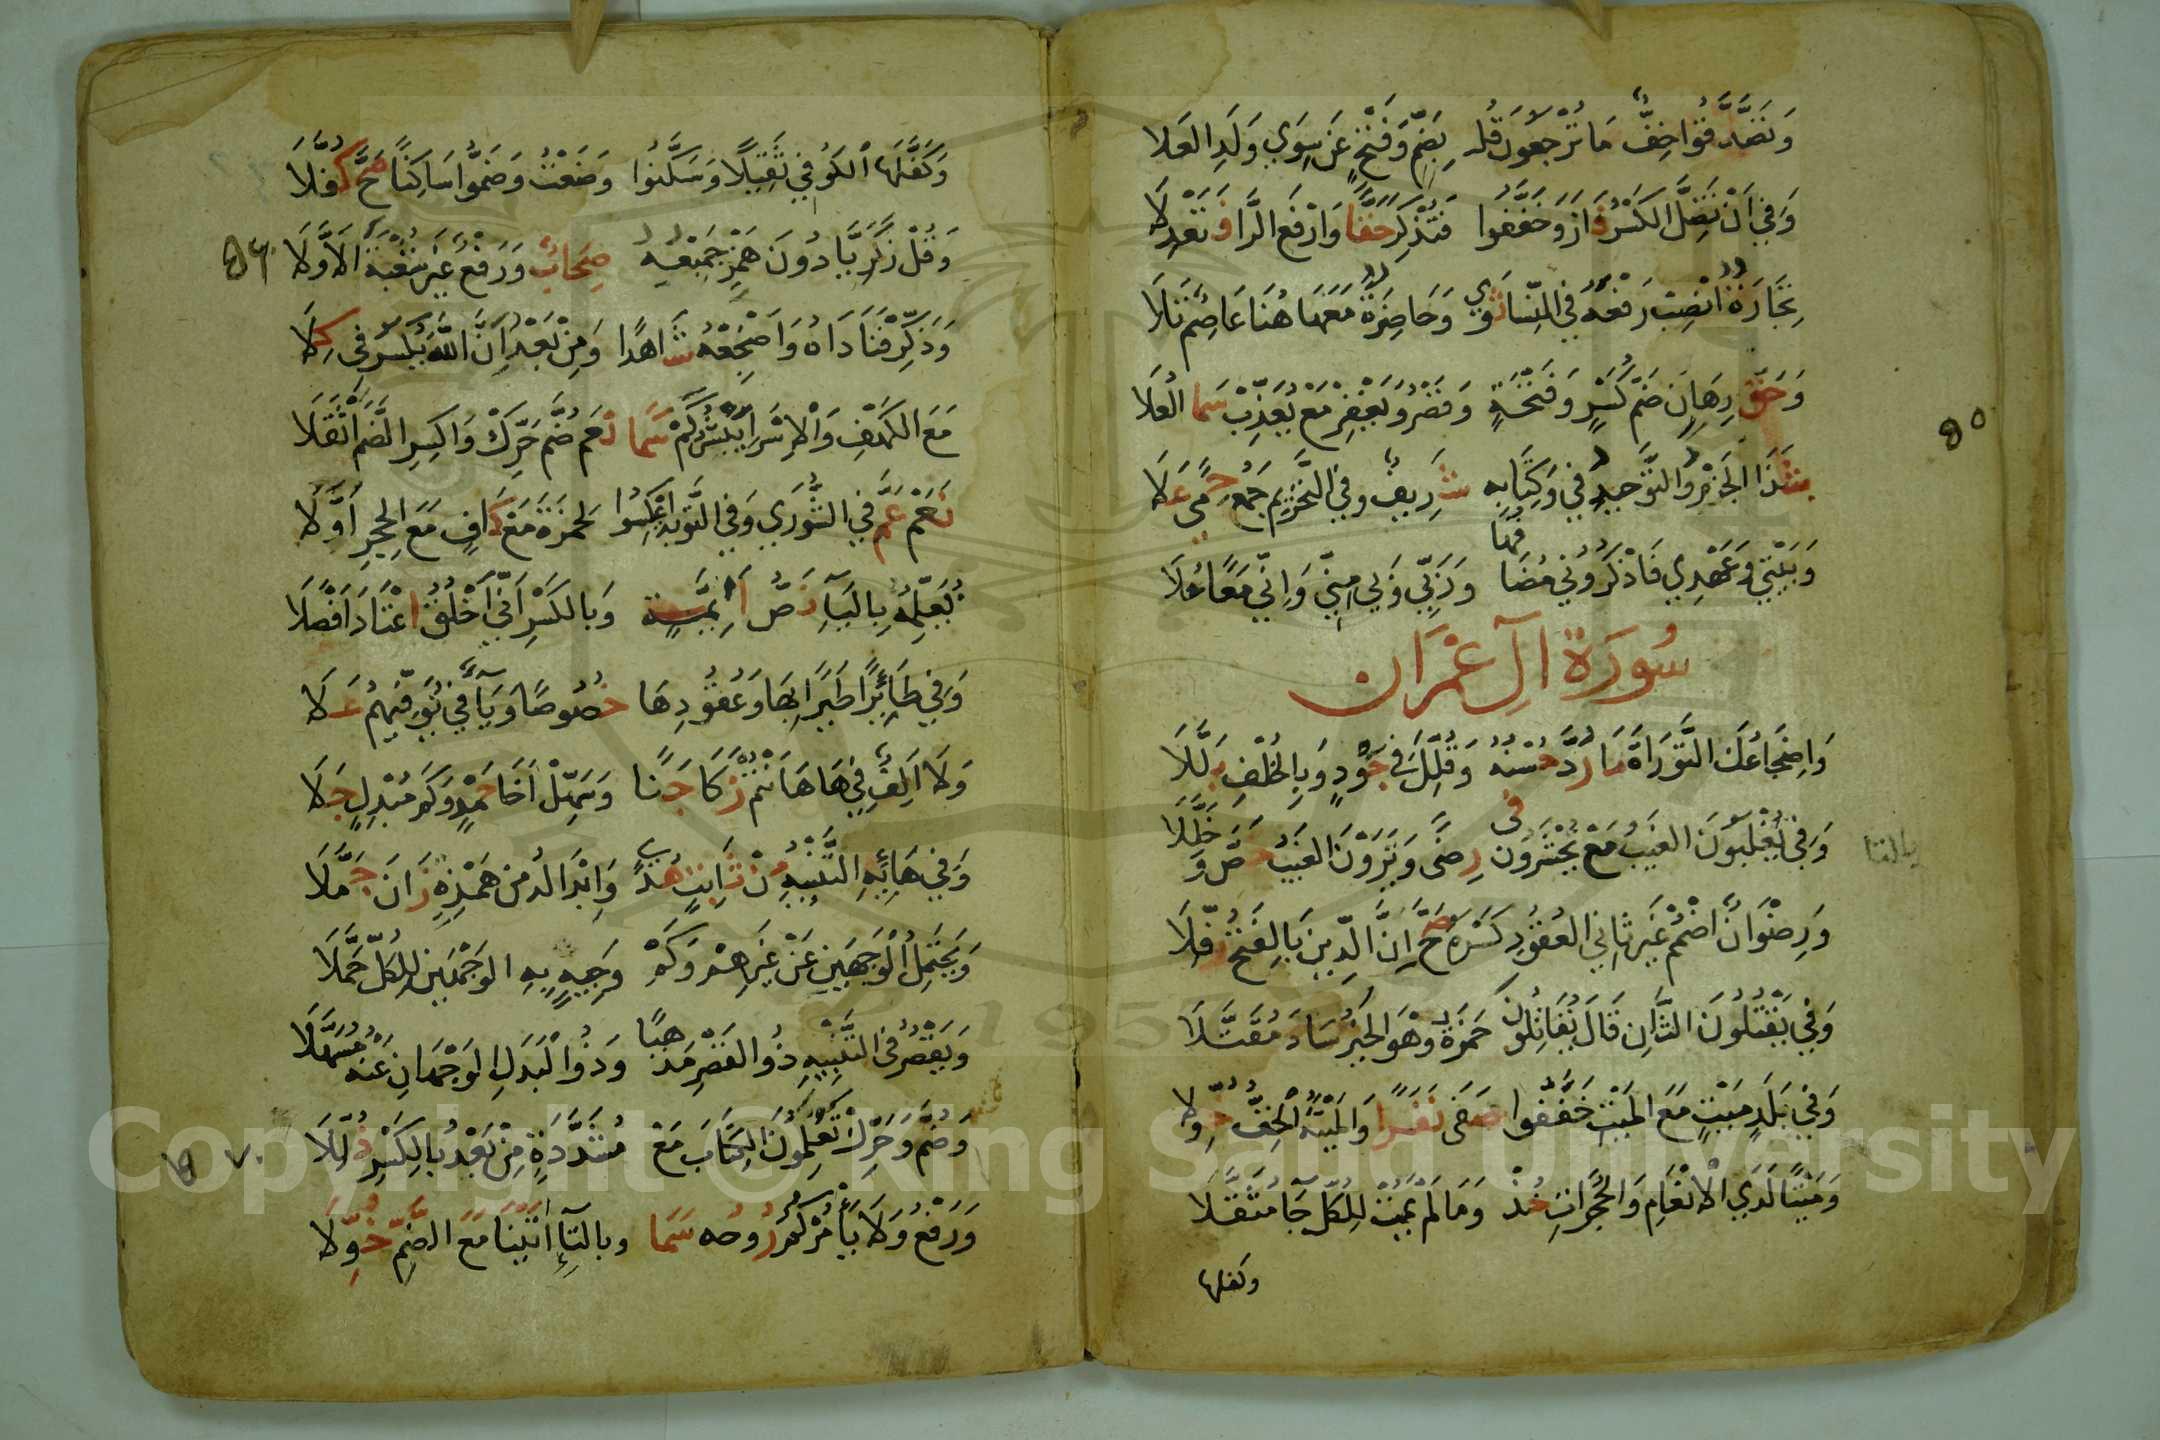 وَتَصَدَّقُوا خِفٌّ مَا تُرْجَعُونَ قُلْ بِضَمٍّ وَفَتْحٍ عَن سِوَي وَلَدِ العَلا
وَفِي أَنْ تَضِلَّ الكَسْرُ فَازَ وَخَفَّفُوا فَتُذْكِرَ حَقًّا وَارْفَعِ الرَّا فَتَعْدِلَا
تِجَارَةٌ انْصِبْ رَفْعَهُ فِي النِّسَا ثَوِي وَحَاضِرَةٌ مَعَهَا هُنَا عَاصِمٌ تَلَا
وَحَقٌّ رِهَانٍ ضَمُّ كَسْرٍ وَفَتْحَةٍ وَقَصْرٌ وَيَغْفِرْ مَعْ يُعَذِّبْ سَمَا العُلَا
شَذَا الجَزْمِ وَالتَّوْحِيدُ فِي وَكِتَابِهِ شَرِيفٌ وَفِي التَّحْرِيمِ جَمْعُ حِمًى عَلَا
وَبَيْتِي وَعَهْدِي فَاذْكُرُونِي مُضَافُهَا وَرَبِّي وَبِي مِنِّي وَإِنِّي مَعًا عُلَا
سُورَةُ آلِ عِمْرَان
وَاِضْجَاعُكَ التَّوْرَاةَ مَا رُدَّ حُسْنُهُ وَقُلِّلَ فِي جَوْدٍ وَبِالخُلْفِ بَلَّلَا
بالتا
وَفِي تُغْلَبُونَ الغَيْبُ مَعْ تُحْشَرُونَ فِي رِضًى وَتَرَوْنَ الغَيْبُ خَصَّ وَخَلَّلَا
وَرِضْوَانٌ اضْمُمْ غَيْرَ ثَانِي العُقُودِ كَسْرَهُ صَحَّ إِنَّ الدِّينَ بِالفَتْحِ رُفِّلَا
وَفِي يَقْتُلُونَ الثَّانِ قَالَ يُقَاتِلُونَ حَمْزَةُ وَهْوَ الحَبْرُ سَادَ مُقَتَّلَا
وَفِي بَلَدٍ مَيْتٍ مَعَ المَيْتِ خَفَّفُوا صَفَى نَفَرًا وَالمَيْتَةُ الْخِفُّ خُوِّلَا
وَمَيْتًا لَدَي الْانْعَامِ وَالحُجُرَاتِ خُذْ وَمَا لَمْ يَمُتْ لِلكُلِّ جَآ مُثَقَّلَا
وكفلها
وَكَفَّلَهَا الْكُوفِي ثَقِيلًا وَسَكَّنُوا وَضَعْتُ وَضَمُّوا سَاكِنًا صَحَّ كُفَّلَا
وَقُلْ زَكَرِيَّا دُونَ هَمْزِ جَمِيعِهِ صِحَابٌ وَرَفْعٌ غَيْرُ شُعْبَةَ الَاوَّلَا
وَذَكِّرْ فَنَادَاهُ وَاَضْجِعْهُ شَاهِدًا وَمِنْ بَعْدُ اَنَّ اللَّهَ يُكْسَرُ فِي كِلَا
مَعَ الكَهْفِ وَالْاِسْرَاءِ يَبْشُرُ كَمْ سَمَا نَعَمْ ضُمَّ حَرِّكْ وَاكْسِرِ الضَّمَّ اَثْقَلَا
نَعَمْ عَمَّ فِي الشُّورَي وَفِي التَّوْبَةِ اعْكِسُوا لِحَمْزَةَ مَعْ كَافٍ مَعَ الحِجْرِ اَوَّلَا
نُعَلِّمُهُ بِاليَآءِ نَصُّ اَئِمَّةٍ وَبِالكَسْرِ اَنِّي اَخْلُقُ اعْتَادَ اَفْصَلَا
وَفِي طَائِرًا طَيْرًا بِهَا وَعُقُودِهَا خُصُوصًا وَيَآءٌ فِي نُوَفِّيهِمُ عَلَا
وَلَا اَلِفٌ فِي هَا هَاَنْتُمْ زَكَا جَنًا وَسَهِّلْ اَخَا حَمْدٍ وَكَمْ مُبْدِلٍ جَلَا
وَفِي هَائِهِ التَّنْبِيهُ مِنْ ثَابِتٍ هُدًي وَاِبْدَالُهُ مِنْ هَمْزَةٍ زَانَ جَمَّلَا
وَيَحْتَمِلُ الْوَجْهَيْنِ عَنْ غَيْرِهِمْ وَكَمْ وَجِيهٍ بِهِ الوَجْهَيْنِ لِلكُلِّ حَمَّلَا
وَيَقْصُرُ فِي التَّنْبِيهِ ذُو القَصْرِ مَذْهَبًا وَذُو الْبَدَلِ الوَجْهَانِ عَنْهُ مُسَهَّلَا
وَضُمَّ وَحَرِّكْ تَعْلِمُونَ الكِتَابَ مَعْ مُشَدَّدَةٍ مِنْ بَعْدُ بِالكَسْرِ ذُلِّلَا
وَرَفْعُ وَلَا يَأْمُرْكُمُ رُوحُه سَمَا وبالتآءِ اٰتَيْنَا مَعَ الضَّمِّ خُوِّلَا